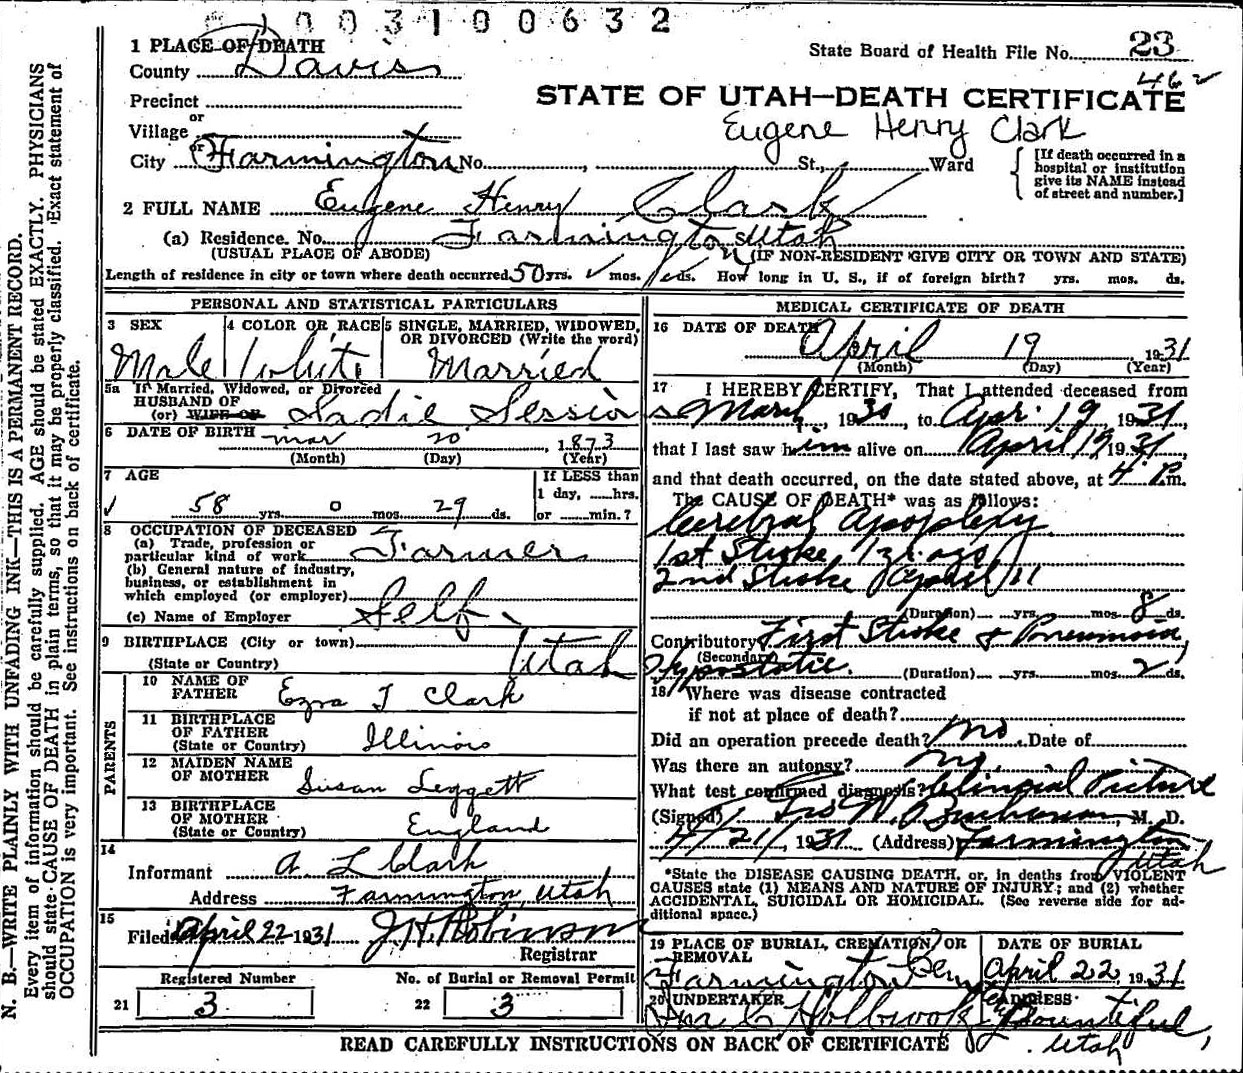 003100632
1 PLACE OF DEATH
State Board of Health File No. 23
County Davis
462
Precinct
STATE OF UTAH—DEATH CERTIFICATE
or
Village
Eugene Henry Clark
or
City Farmington No. , St., Ward
[If death occurred in a hospital or institution give its NAME instead of street and number.]
2 FULL NAME Eugene Henry Clark
(a) Residence. No. Farmington Utah
(USUAL PLACE OF ABODE) (IF NON-RESIDENT GIVE CITY OR TOWN AND STATE)
Length of residence in city or town where death occurred. 50 yrs. mos. ds. How long in U. S., if of foreign birth? yrs. mos. ds.
PERSONAL AND STATISTICAL PARTICULARS
3 SEX 4 COLOR OR RACE 5 SINGLE, MARRIED, WIDOWED, OR DIVORCED (Write the word)
Male White Married
5a If Married, Widowed, or Divorced
HUSBAND OF
(or) WIFE OF Sadie Sessions
6 DATE OF BIRTH Mar 20, 1873
(Month) (Day) (Year)
7 AGE If LESS than
1 day, hrs.
58 yrs. 0 mos. 29 ds. or min.?
8 OCCUPATION OF DECEASED
(a) Trade, profession or
particular kind of work Farmer
(b) General nature of industry,
business, or establishment in
which employed (or employer)
(c) Name of Employer Self
9 BIRTHPLACE (City or town)
(State or Country) Utah
PARENTS
10 NAME OF
FATHER Ezra T Clark
11 BIRTHPLACE
OF FATHER
(State or Country) Illinois
12 MAIDEN NAME
OF MOTHER Susan Leggett
13 BIRTHPLACE
OF MOTHER
(State or Country) England
14
Informant A. L Clark
Address Farmington, Utah
15
Filed April 22 1931 J.H. Robinson
Registrar
Registered Number No. of Burial or Removal Permit
21 3 22 3
MEDICAL CERTIFICATE OF DEATH
16 DATE OF DEATH
April 19 1931
(Month) (Day) (Year)
17 I HEREBY CERTIFY, That I attended deceased from
1930 to Apr. 19, 1931,
that I last saw him alive on April 19 1931,
and that death occurred, on the date stated above, at 4 P.m.
The CAUSE OF DEATH* was as follows:
Cerebral Apoplexy
1st Stroke 1 yr. ago
2nd Stroke April 11
(Duration) yrs. mos. 8 ds.
Contributory First Stroke & Pneumonia,
(Secondary)
Hypostatic. (Duration) yrs. mos. 2 ds.
18 Where was disease contracted
if not at place of death?
Did an operation precede death? no. Date of
Was there an autopsy? no.
What test confirmed diagnosis? Clinical Picture
(Signed) Buchanan, M. D.
4/21/, 1931 (Address) Farmington
Utah
*State the DISEASE CAUSING DEATH, or, in deaths from VIOLENT
CAUSES state (1) MEANS AND NATURE OF INJURY; and (2) whether
ACCIDENTAL, SUICIDAL OR HOMICIDAL. (See reverse side for ad-
ditional space.)
19 PLACE OF BURIAL, CREMATION, OR REMOVAL DATE OF BURIAL
Farmington Cem April 22, 1931
20 UNDERTAKER ADDRESS
Holbrook Bountiful,
Utah
READ CAREFULLY INSTRUCTIONS ON BACK OF CERTIFICATE
N. B.—WRITE PLAINLY WITH UNFADING INK—THIS IS A PERMANENT RECORD.
Every item of information should be carefully supplied. AGE should be stated EXACTLY. PHYSICIANS
should state CAUSE OF DEATH in plain terms, so that it may be properly classified. Exact statement of
OCCUPATION is very important. See instructions on back of certificate.